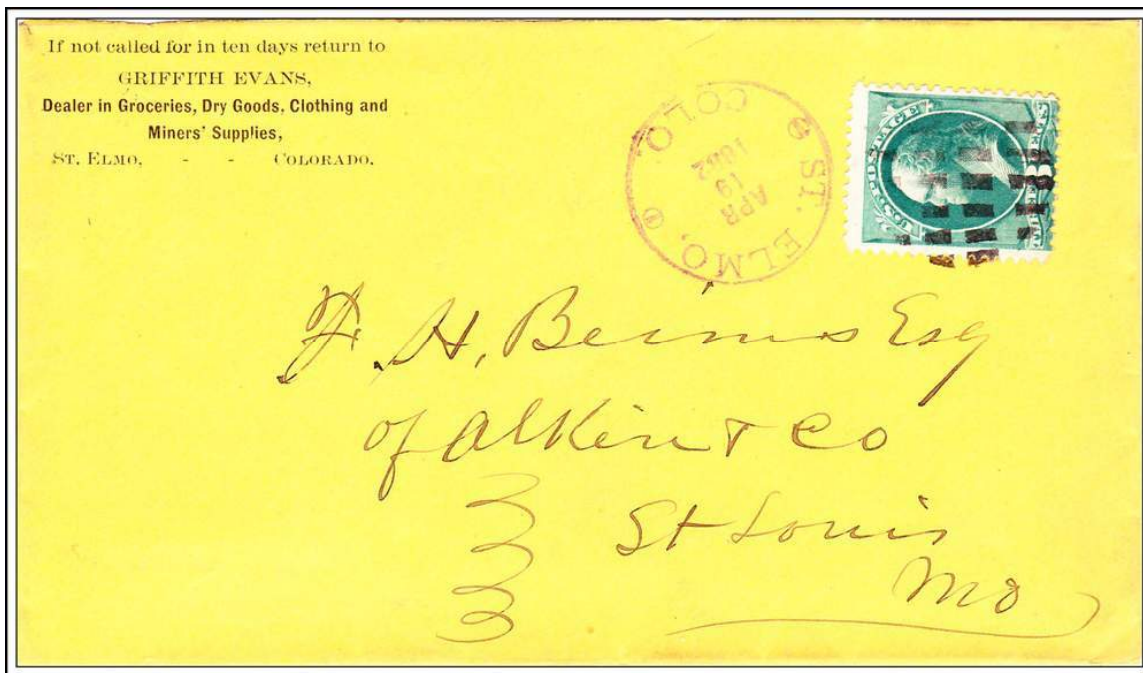 If not called for in ten days return to
GRIFFITH EVANS,
Dealer in Groceries, Dry Goods, Clothing and
Miners' Supplies,
ST. ELMO, - - COLORADO.
ST. ELMO,
COLO.
APR
19
1882
U.S. POSTAGE
H. Bemis Esq
of Alkin & Co
St Louis
Mo